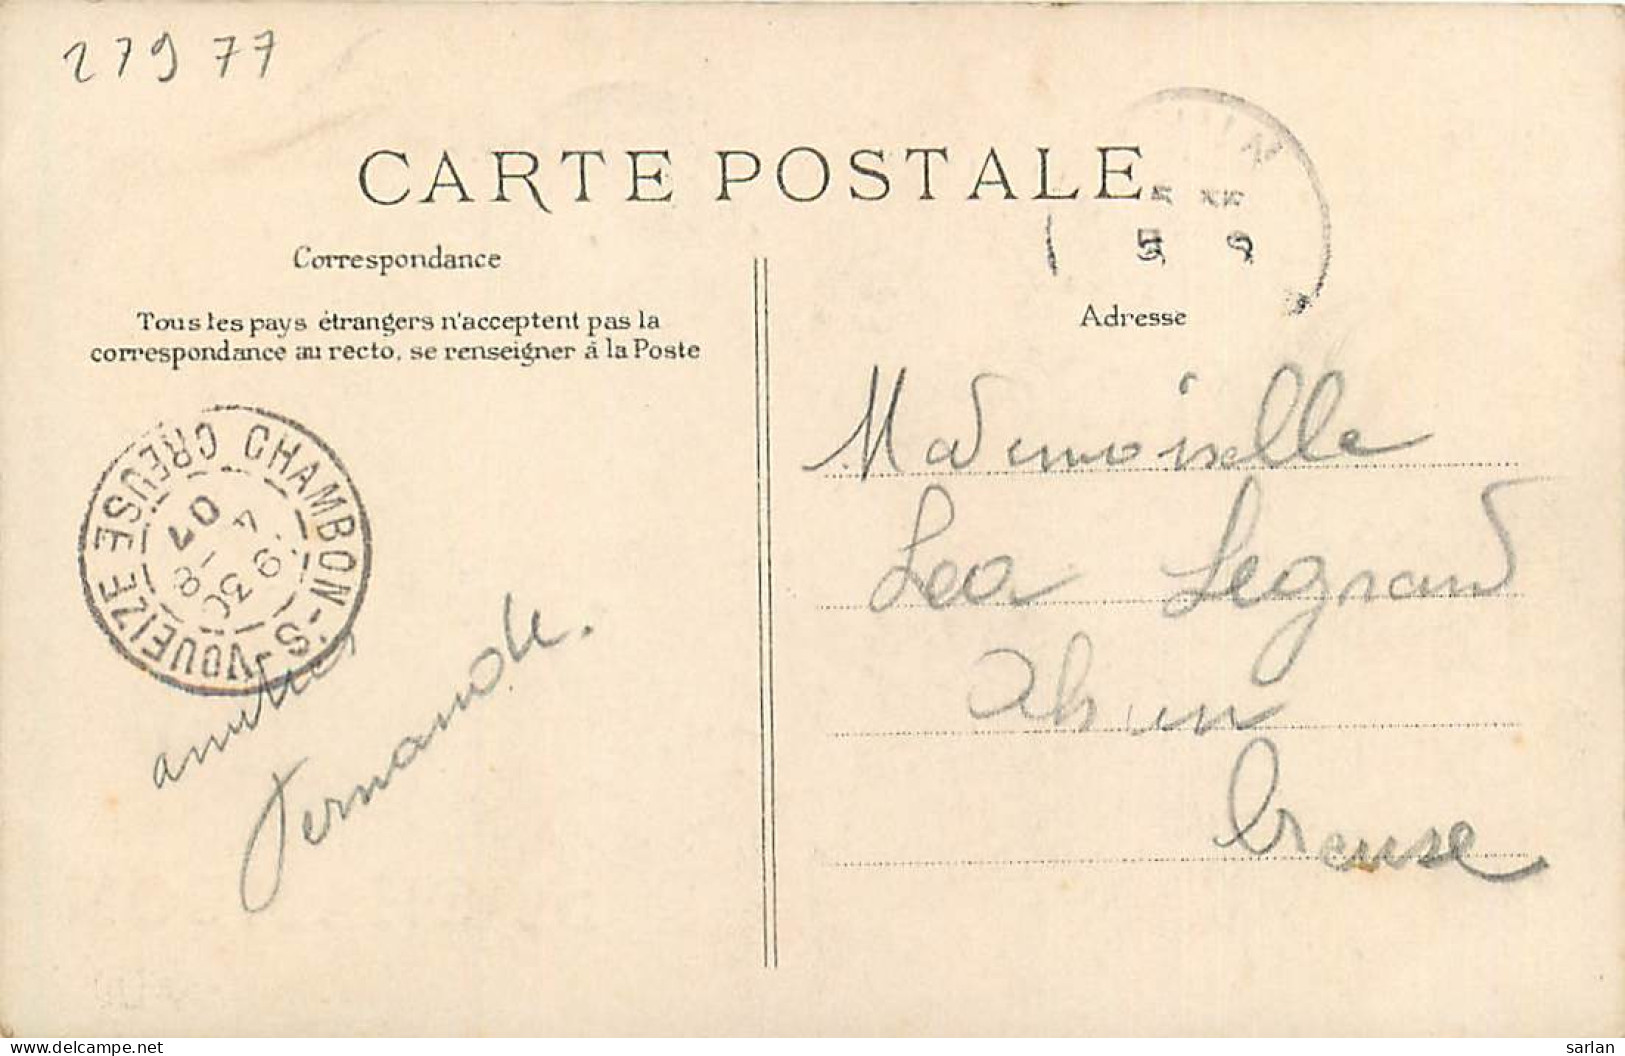 27977
CARTE POSTALE
Correspondance
Tous les pays étrangers n'acceptent pas la
correspondance au recto, se renseigner à la Poste
CHAMBON-S-VOUEIZE CREUSE
9 30
4 -8
07
amitiés
Fernande.
Adresse
Mademoiselle
Lea Legrand
Ahun
Creuse
sarlan